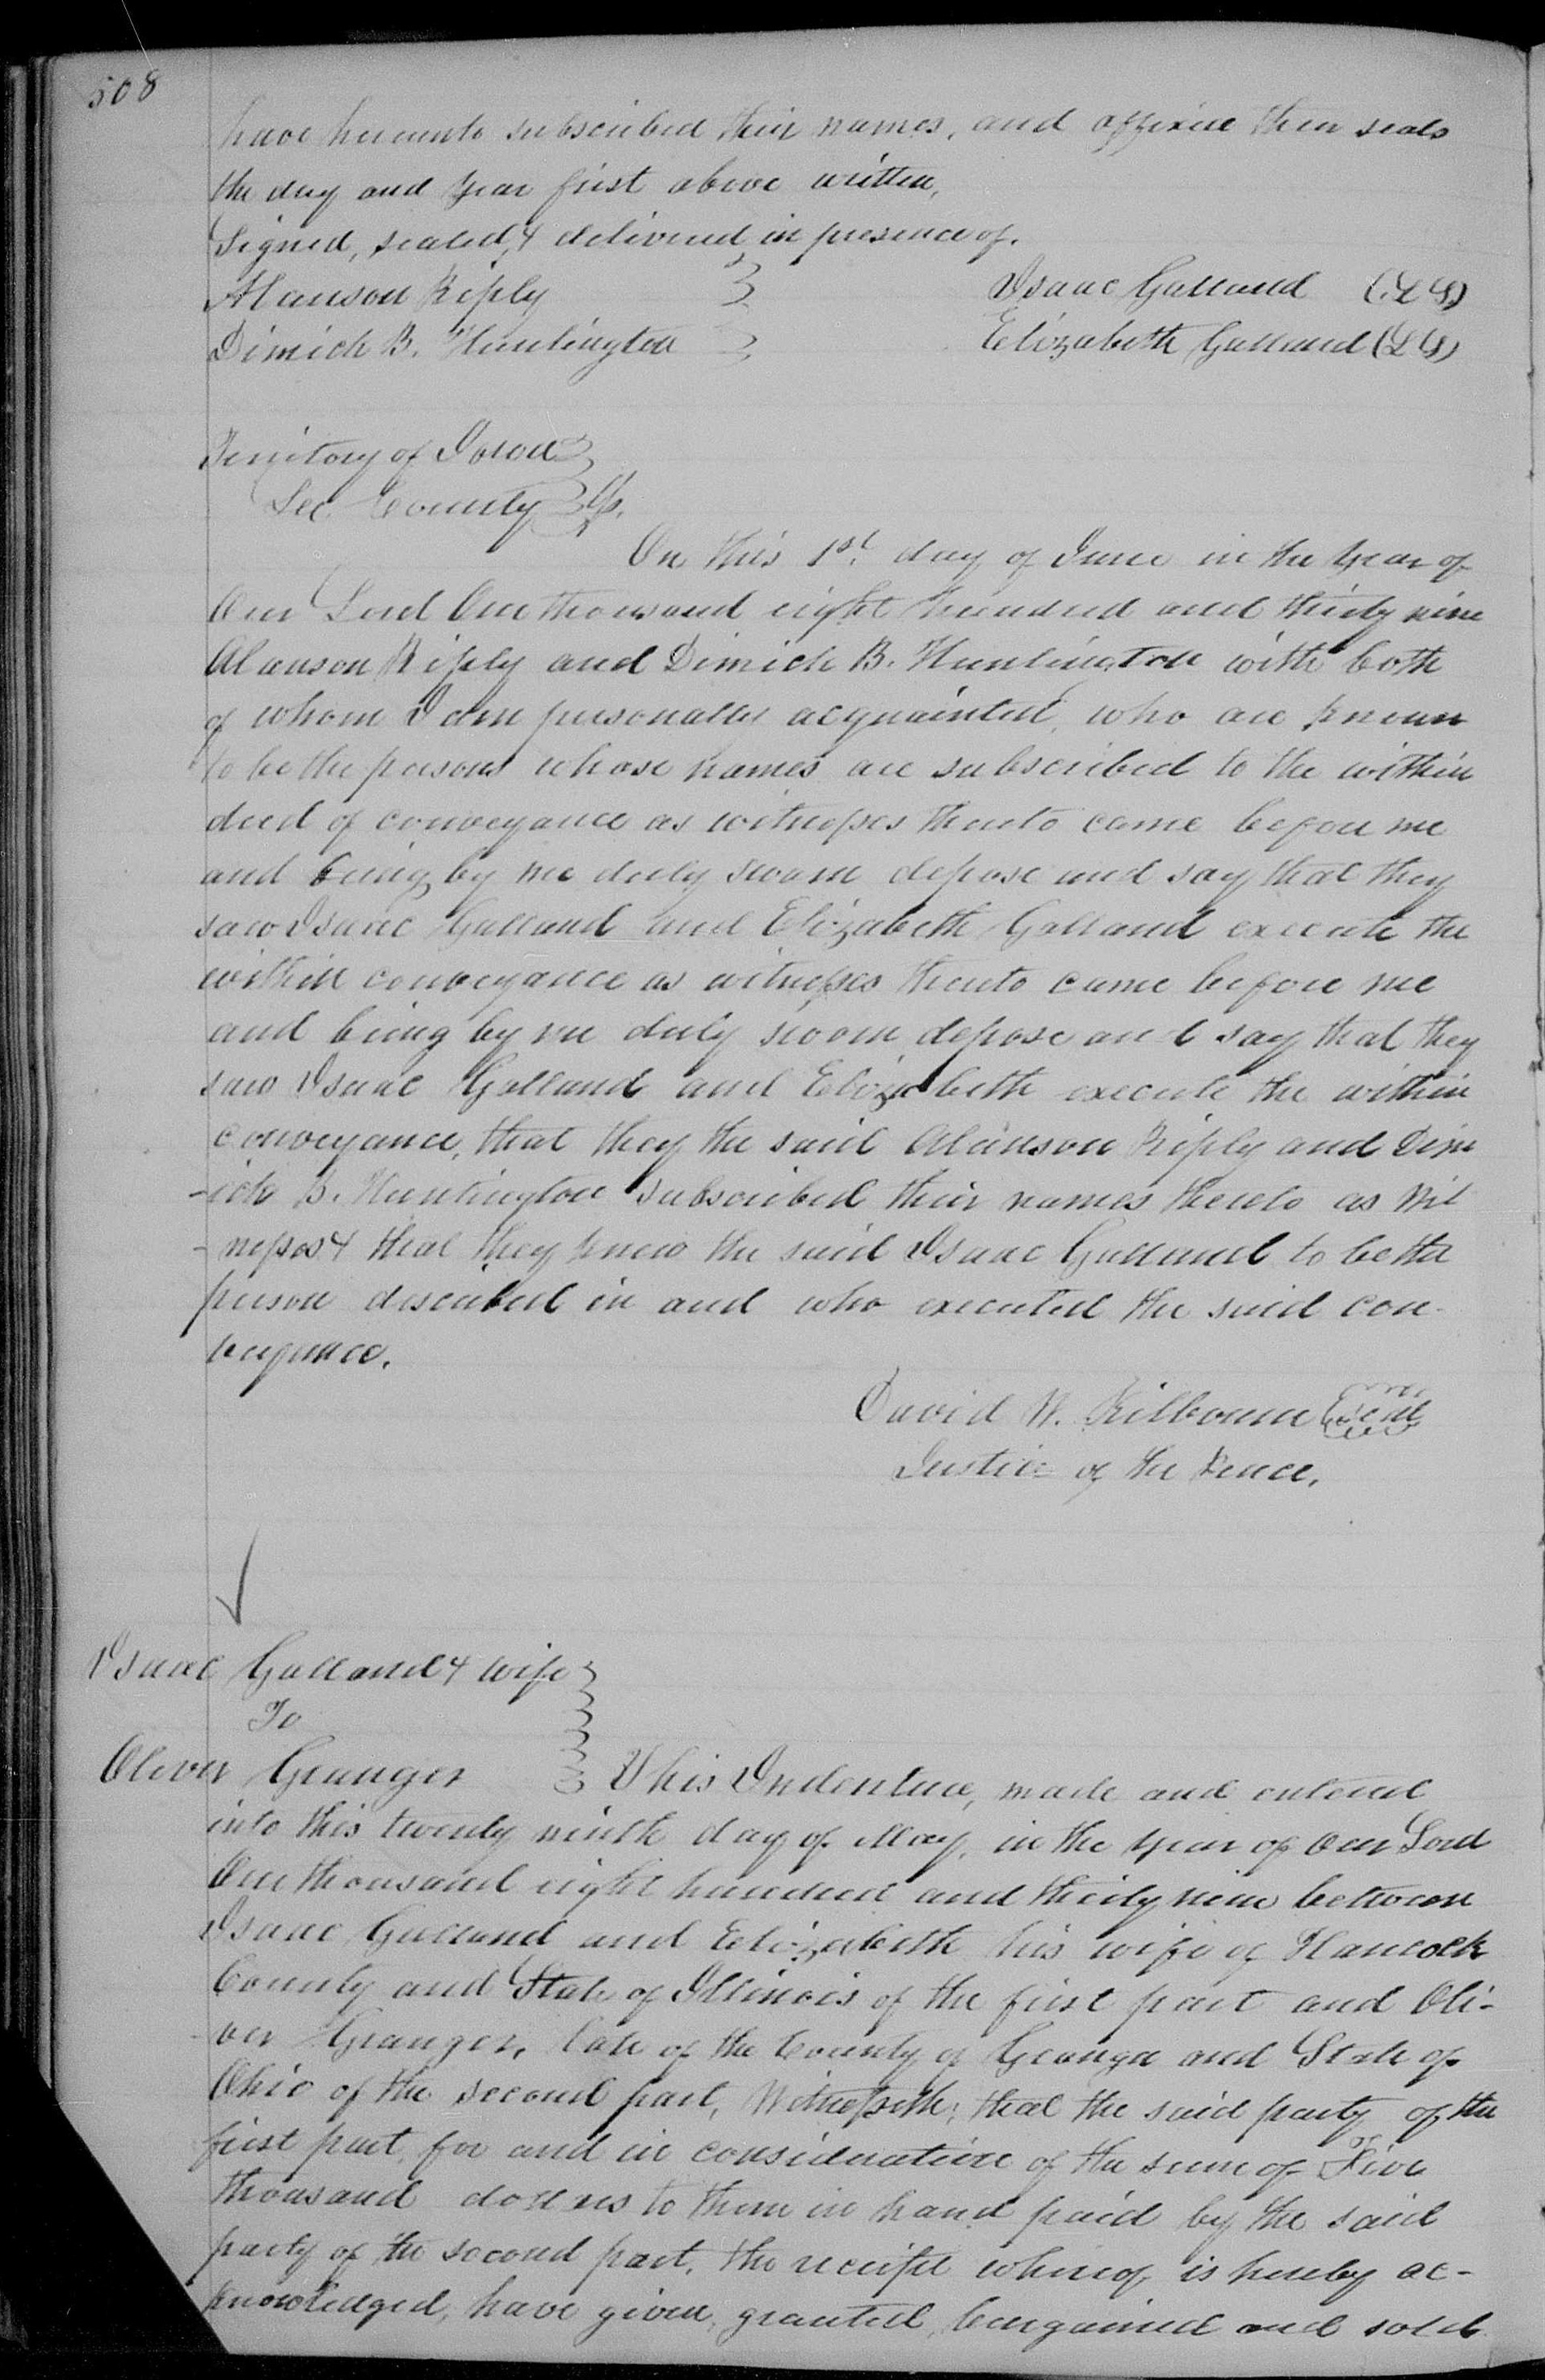 508
have hereunto subscribed their names, and affixed their seals
the day and year first above written,
Signed, sealed, & delivered in presence of.
Alanson Riply Isaac Galland (L S)
Dimick B. Huntington Elizabeth Galland (L S)
Territory of Iowa
Lee County Ss.
On this 1st day of June in the year of
Our Lord One thousand eight hundred and thirty nine
Alanson Riply and Dimick B. Huntington with both
of whom I am personally acquainted, who are known
to be the persons whose names are subscribed to the within
deed of conveyance as witnesses thereto came before me
and being by me duly sworn depose and say that they
saw Isaac Galland and Elizabeth Galland execute the
within conveyance as witnesses thereto came before me
and being by me duly sworn depose and say that they
saw Isaac Galland and Elizabeth execute the within
conveyance, that they the said Alanson Riply and Dim
-ick B. Huntington subscribed their names thereto as Wit
-nesses & that they knew the said Isaac Galland to be the
person described in and who executed the said con-
veyance.
David W. Kilbourn Seal
Justice of the Peace.
Isaac Galland & wife
To
Oliver Granger This Indenture, made and entered
into this twenty ninth day of May, in the year of Our Lord
One thousand eight hundred and thirty nine between
Isaac Galland and Elizabeth his wife of Hancock
County and State of Illinois of the first part and Oli-
ver Granger, late of the County of Geauga and State of
Ohio of the second part, Witnesseth; that the said party of the
first part, for and in consideration of the sum of Five
thousand dollars to them in hand paid by the said
party of the second part, the receipt whereof is hereby ac-
knowledged, have given, granted, bargained and sold